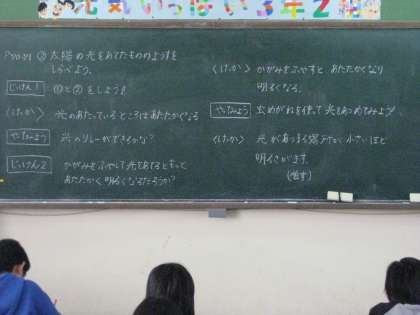 元気いっぱい3年2組
P90.91 ② 太陽の光をあてたもののようすを
しらべよう。
じっけん1 ①と②をしよう！
〈けっか〉 光のあたっているところはあたたかくなる
やってみよう 光のリレーができるかな？
じっけん2 かがみをふやして光をあてるともっと
あたたかく明るくなるだろうか？
〈けっか〉 かがみをふやすと あたたかくなり
明るくなる。
やってみよう 虫めがねを使って光をあつめてみよう
〈けっか〉 光があつまる場所が小さいほど
明るさがます。
(増す)